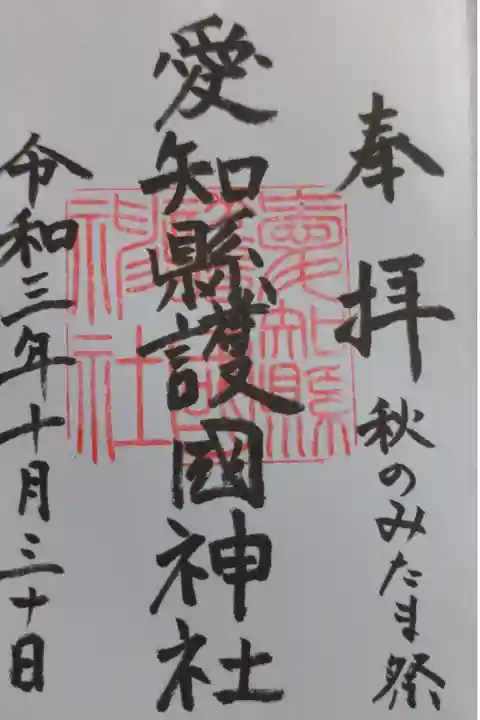 奉拝
秋のみたま祭
愛知縣護國神社
愛知縣護國神社
令和三年十月三十日